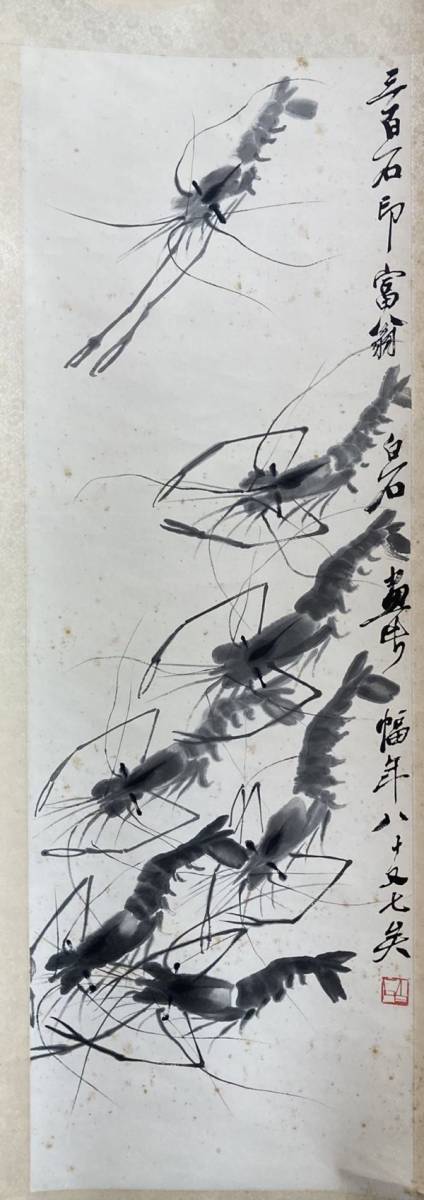 三百石印富翁白石画此幅年八十又七矣